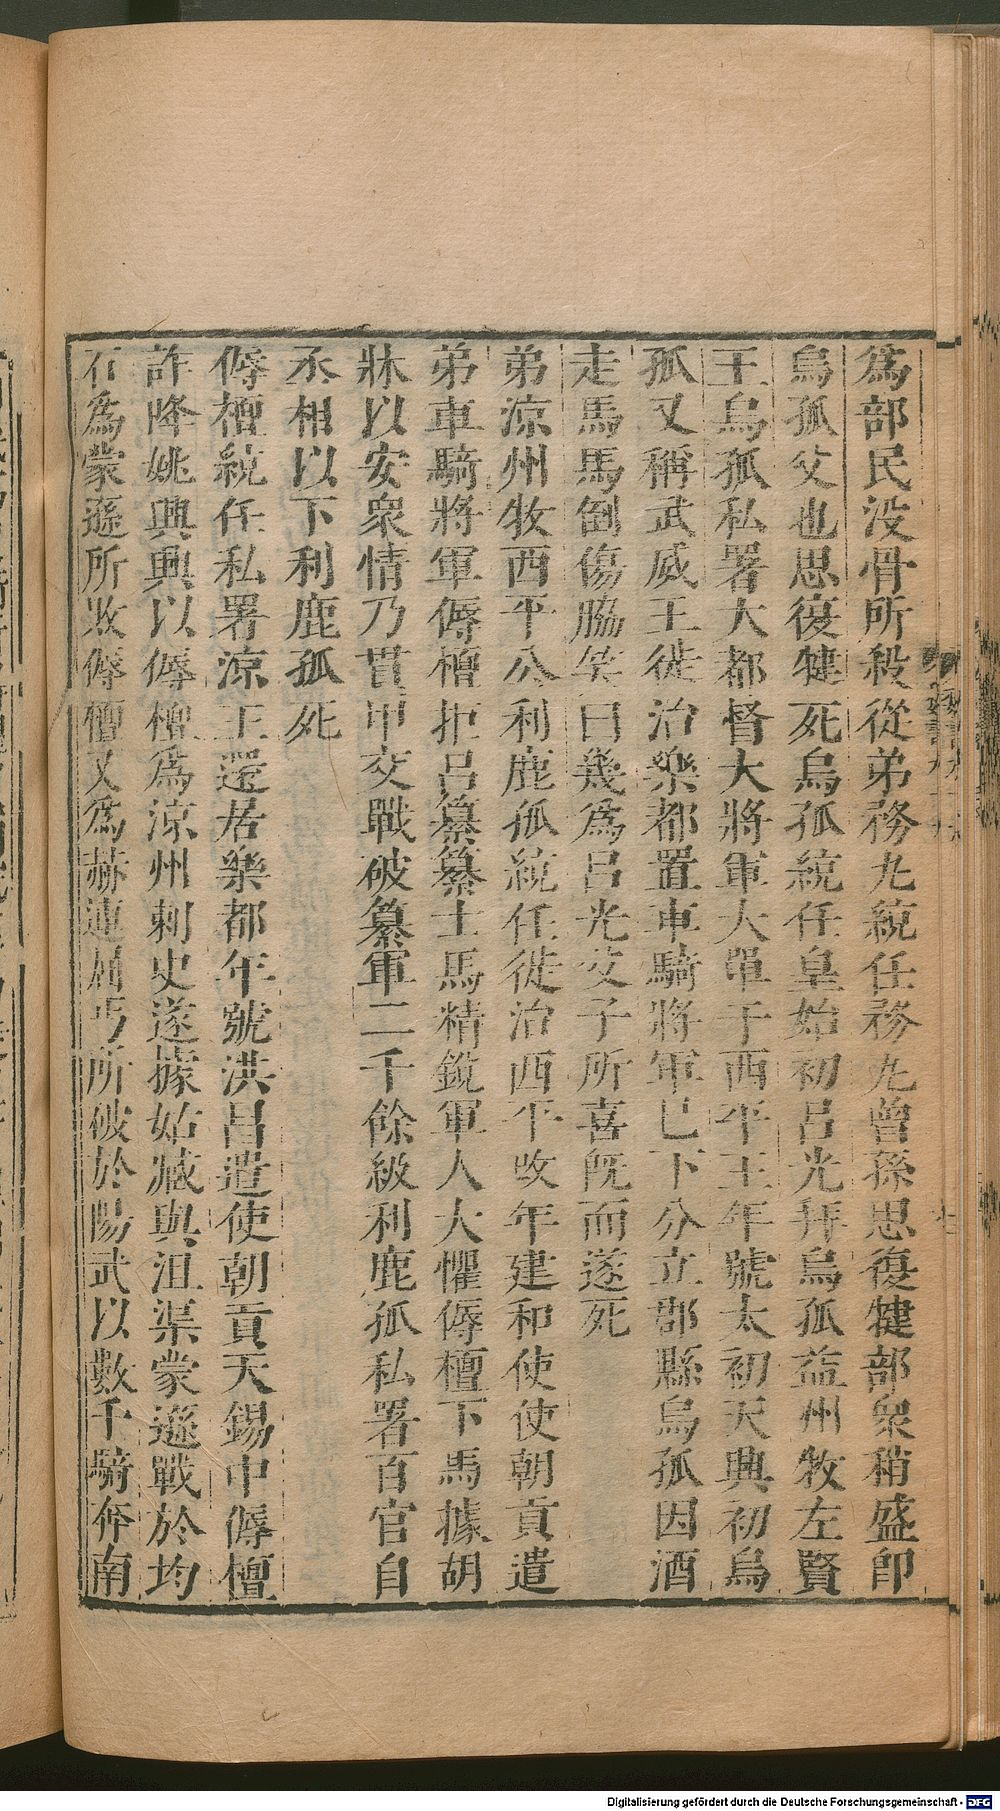 爲部民没骨所殺從弟務九統任務九曾孫思復犍部衆稍盛卽
烏孤父也思復犍死烏孤統任皇始初呂光拜烏孤益州牧左賢
王烏孤私署大都督大將軍大單于西平王年號太初天興初烏
孤又稱武威王徙治樂都置車騎將軍已下分立郡縣烏孤因酒
走馬馬倒傷脇笑曰幾爲呂光父子所喜旣而遂死
弟涼州牧西平公利鹿孤統任徙治西平改年建和使使朝貢遣
弟車騎將軍傉檀拒呂纂纂士馬精銳軍人大懼傉檀下馬據胡
牀以安衆情乃貫甲交戰破纂軍二千餘級利鹿孤私署百官自
丞相以下利鹿孤死
傉檀統任私署涼王還居樂都年號洪昌遣使朝貢天錫中傉檀
詐降姚興興以傉檀爲涼州刺史遂據姑臧與沮渠蒙遜戰於均
石爲蒙遜所敗傉檀又爲赫連屈丐所破於陽武以數千騎奔南
Digitalisierung gefördert durch die Deutsche Forschungsgemeinschaft - DFG